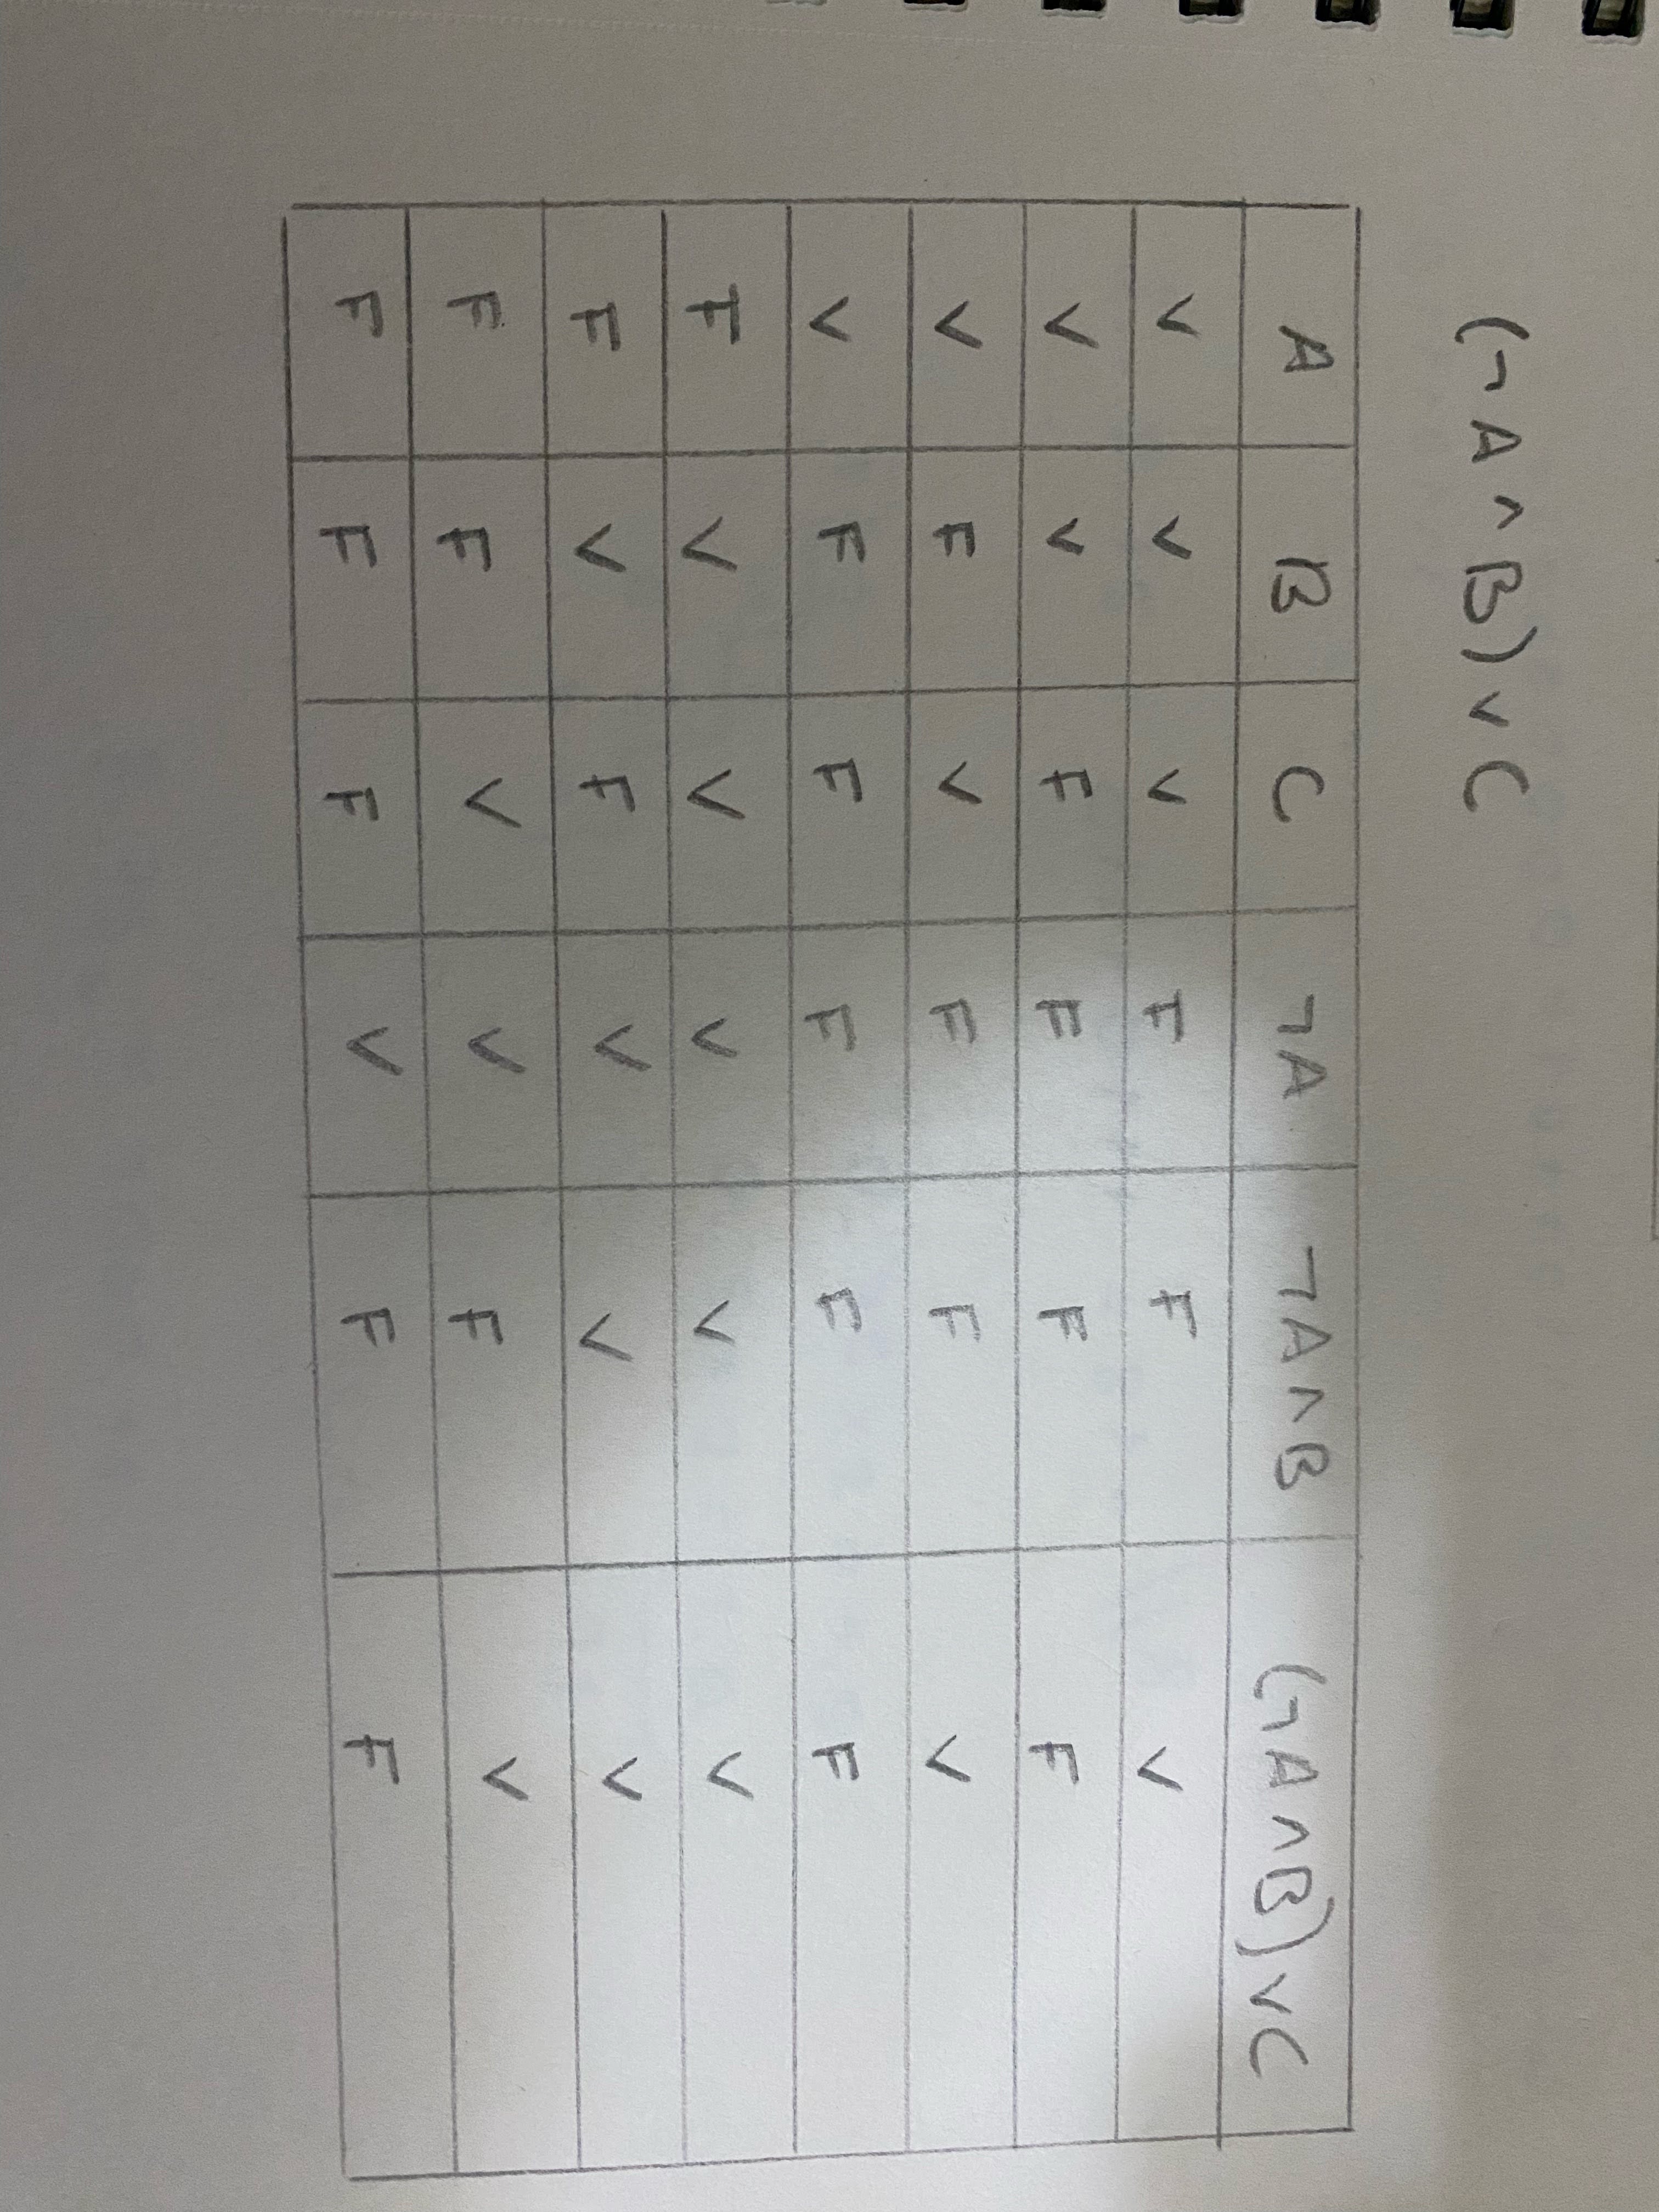 (¬A∧B)∨C
A B C ¬A ¬A∧B (¬A∧B)∨C
V V V F F V
V V F F F F
V F V F F V
V F F F F F
F V V V V V
F V F V V V
F F V V F V
F F F V F F